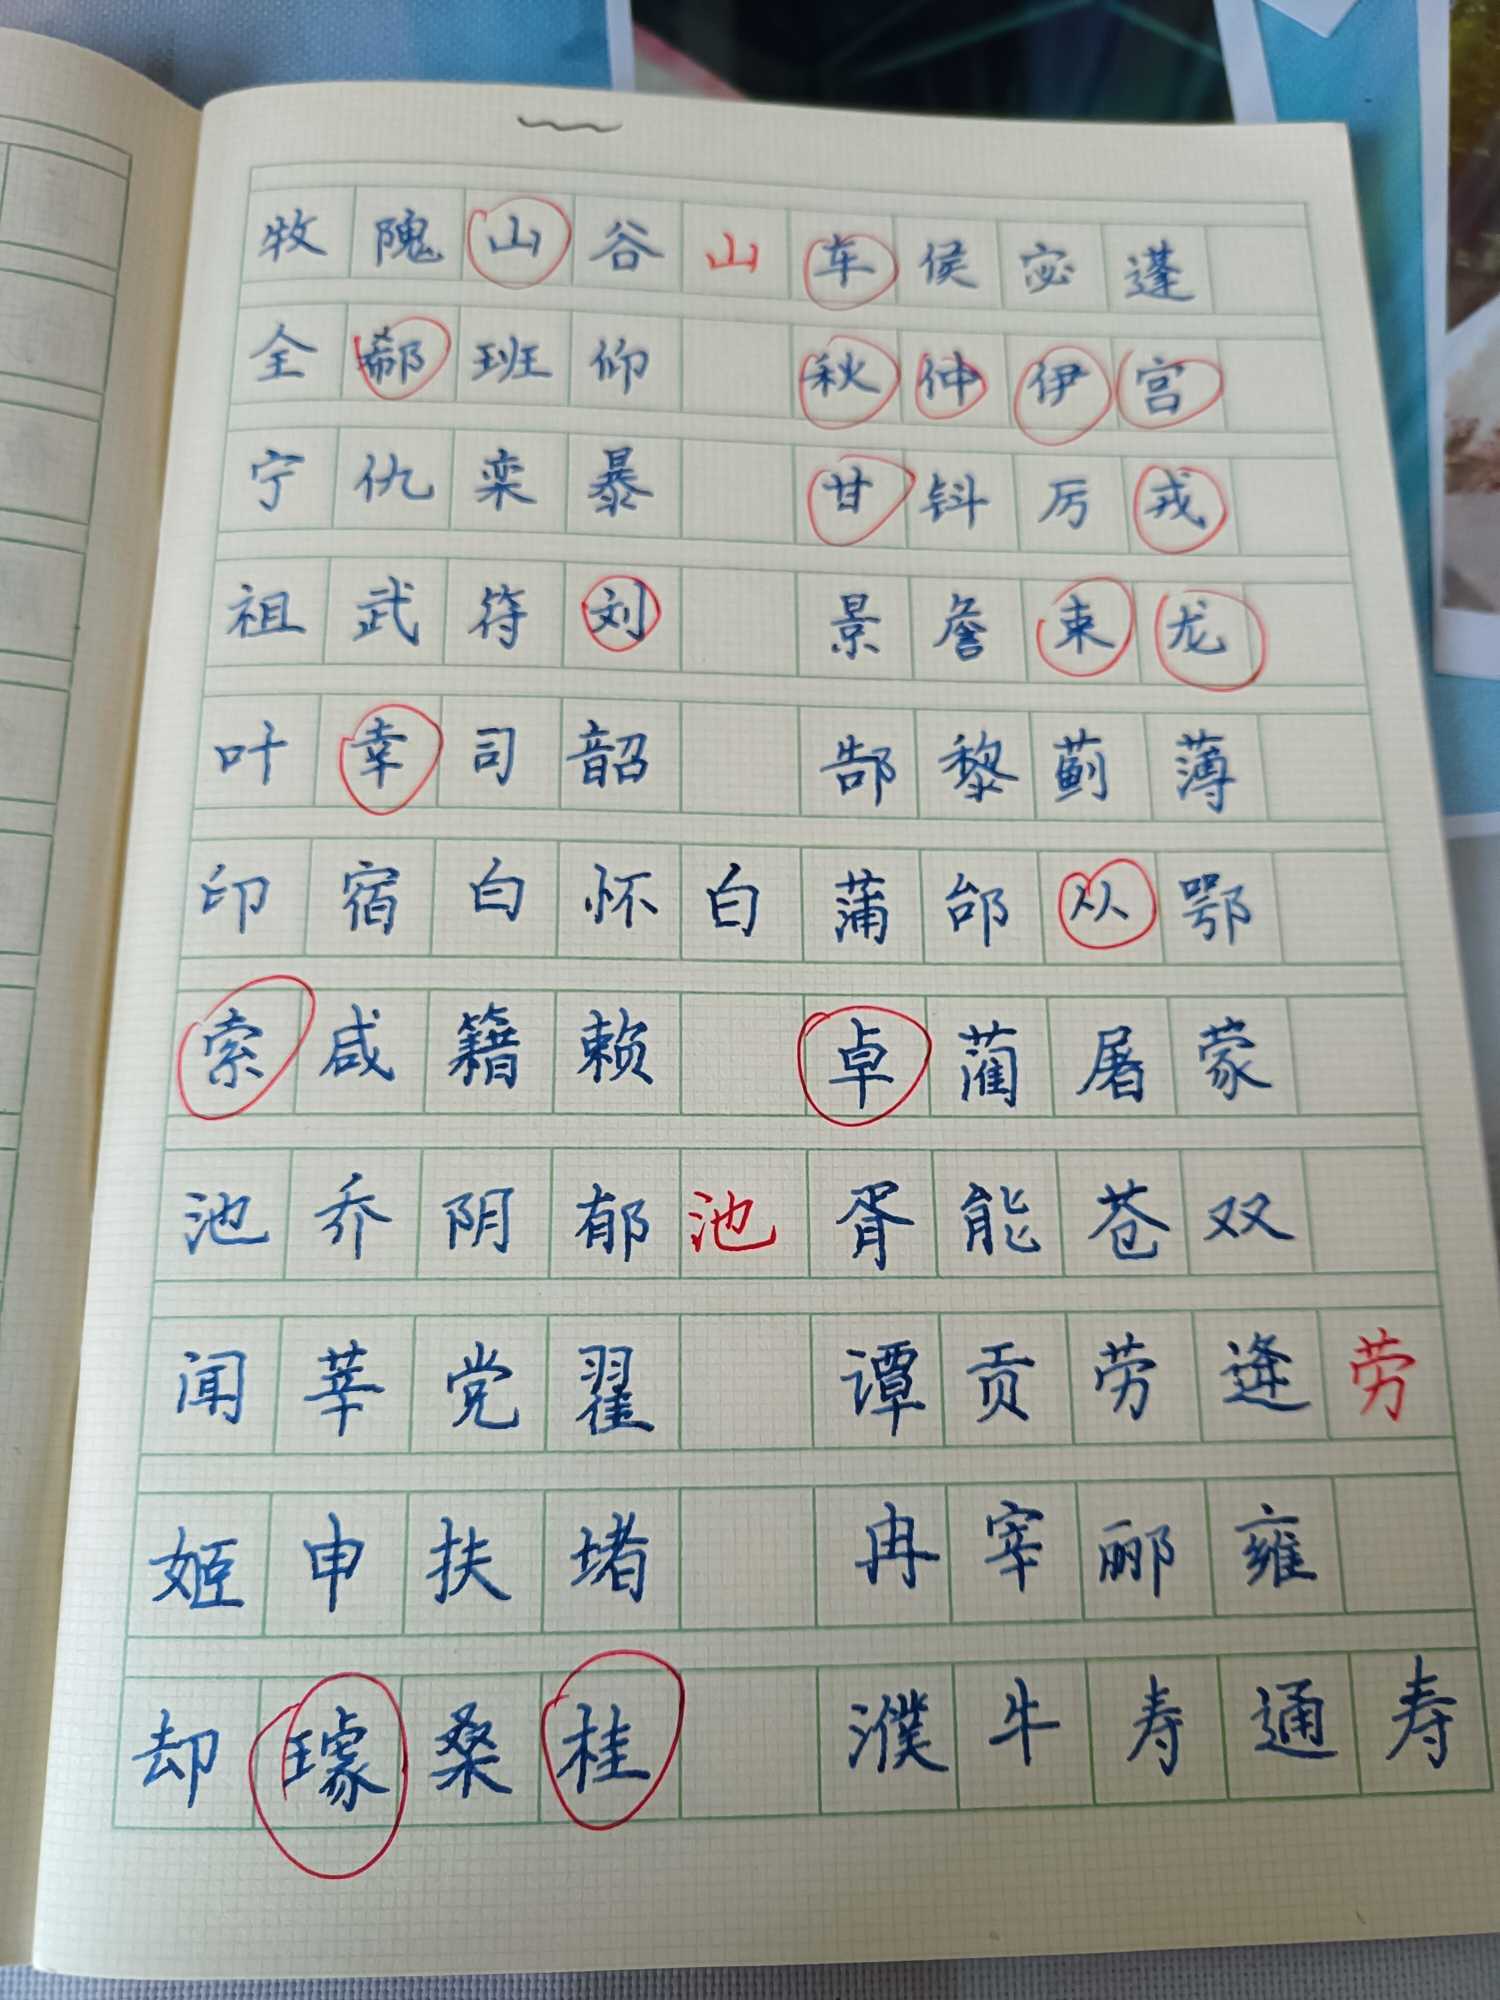 牧隗山谷山车侯宓蓬
全郗班仰秋仲伊宫
宁仇栾暴甘钭厉戎
祖武符刘景詹束龙
叶幸司韶郜黎蓟薄
印宿白怀白蒲邰从鄂
索咸籍赖卓蔺屠蒙
池乔阴郁池胥能苍双
闻莘党翟谭贡劳逄劳
姬申扶堵冉宰郦雍
却璩桑桂濮牛寿通寿